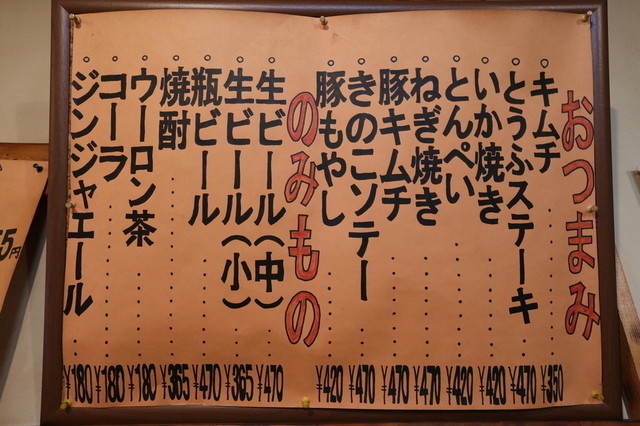 おつまみ
キムチ ¥350
とうふステーキ ¥470
いか焼き ¥420
とんぺい ¥420
ねぎ焼き ¥470
豚キムチ ¥470
きのこソテー ¥470
豚もやし ¥420
のみもの
生ビール(中) ¥470
生ビール(小) ¥365
瓶ビール ¥470
焼酎 ¥365
ウーロン茶 ¥180
コーラ ¥180
ジンジャエール ¥180
5円